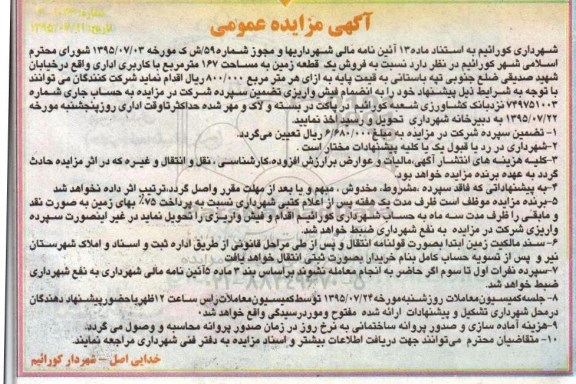 آگهی مزایده عمومی
شهرداری کورائیم به استناد ماده۱۳ آئین نامه مالی شهرداریها و مجوز شماره۵۹/ش ک مورخه ۱۳۹۵/۰۷/۰۳ شورای محترم
اسلامی شهر کورائیم در نظر دارد نسبت به فروش یک قطعه زمین به مساحت ۱۶۷ مترمربع با کاربری اداری واقع درخیابان
شهید صدیقی ضلع جنوبی تپه باستانی به قیمت پایه به ازای هر متر مربع ۸۰۰/۰۰۰ ریال اقدام نماید شرکت کنندگان می توانند
با توجه به شرایط ذیل پیشنهاد خود را به انضمام فیش واریزی تضمین سپرده شرکت در مزایده به حساب جاری شماره
۷۴۹۷۵۱۰۰۳ نزدبانک کشاورزی شعبه کورائیم در پاکت در بسته و لاک و مهر شده حداکثرتاوقت اداری روزپنجشنبه مورخه
۱۳۹۵/۰۷/۲۲ به دبیرخانه شهرداری تحویل و رسید اخذ نمایید.
۱- تضمین سپرده شرکت در مزایده به مبلغ ۶/۶۸۰/۰۰۰ ریال تعیین می‌گردد.
۲-شهرداری در رد یا قبول یک یا کلیه پیشنهادات مختار است.
۳-کلیه هزینه های انتشار آگهی،مالیات و عوارض برارزش افزوده،کارشناسی، نقل و انتقال و غیره که در اثر مزایده حادث
گردد به عهده برنده مزایده خواهد بود.
۴-به پیشنهاداتی که فاقد سپرده ،مشروط، مخدوش ، مبهم و یا بعد از مهلت مقرر واصل گردد،ترتیب اثر داده نخواهد شد
۵-برنده مزایده موظف است ظرف مدت یک هفته پس از اعلام کتبی شهرداری نسبت به پرداخت ۷۵٪ بهای زمین به صورت نقد
و مابقی را ظرف مدت سه ماه به حساب شهرداری کورائیم اقدام و فیش واریزی را تحویل نماید در غیر اینصورت سپرده
واریزی شرکت در مزایده به نفع شهرداری ضبط خواهد شد.
۶- سند مالکیت زمین ابتدا بصورت قولنامه انتقال و پس از طی مراحل قانونی از طریق اداره ثبت و اسناد و املاک شهرستان
نیر و پس از تسویه حساب کامل بنام خریدار بصورت ثبتی انتقال خواهد یافت
۷-سپرده نفرات اول تا سوم اگر حاضر به انجام معامله نشوند براساس بند ۳ ماده ۵آئین نامه مالی شهرداری به نفع شهرداری
ضبط خواهد شد.
۸- جلسه‌کمیسیون‌معاملات روزشنبه‌مورخه۱۳۹۵/۰۷/۲۴ توسط‌کمیسیون‌معاملات‌راس ساعت ۱۲ظهرباحضورپیشنهاد دهندگان
درمحل شهرداری تشکیل و پیشنهادات ارائه شده مفتوح وموردرسیدگی واقع خواهدشد.
۹-هزینه آماده سازی و صدور پروانه ساختمانی به نرخ روز در زمان صدور پروانه محاسبه و وصول می گردد.
۱۰-متقاضیان محترم می‌توانند جهت دریافت اطلاعات بیشتر و اسناد مزایده به دفتر فنی شهرداری مراجعه نمایند.
خدایی اصل - شهردار کورائیم